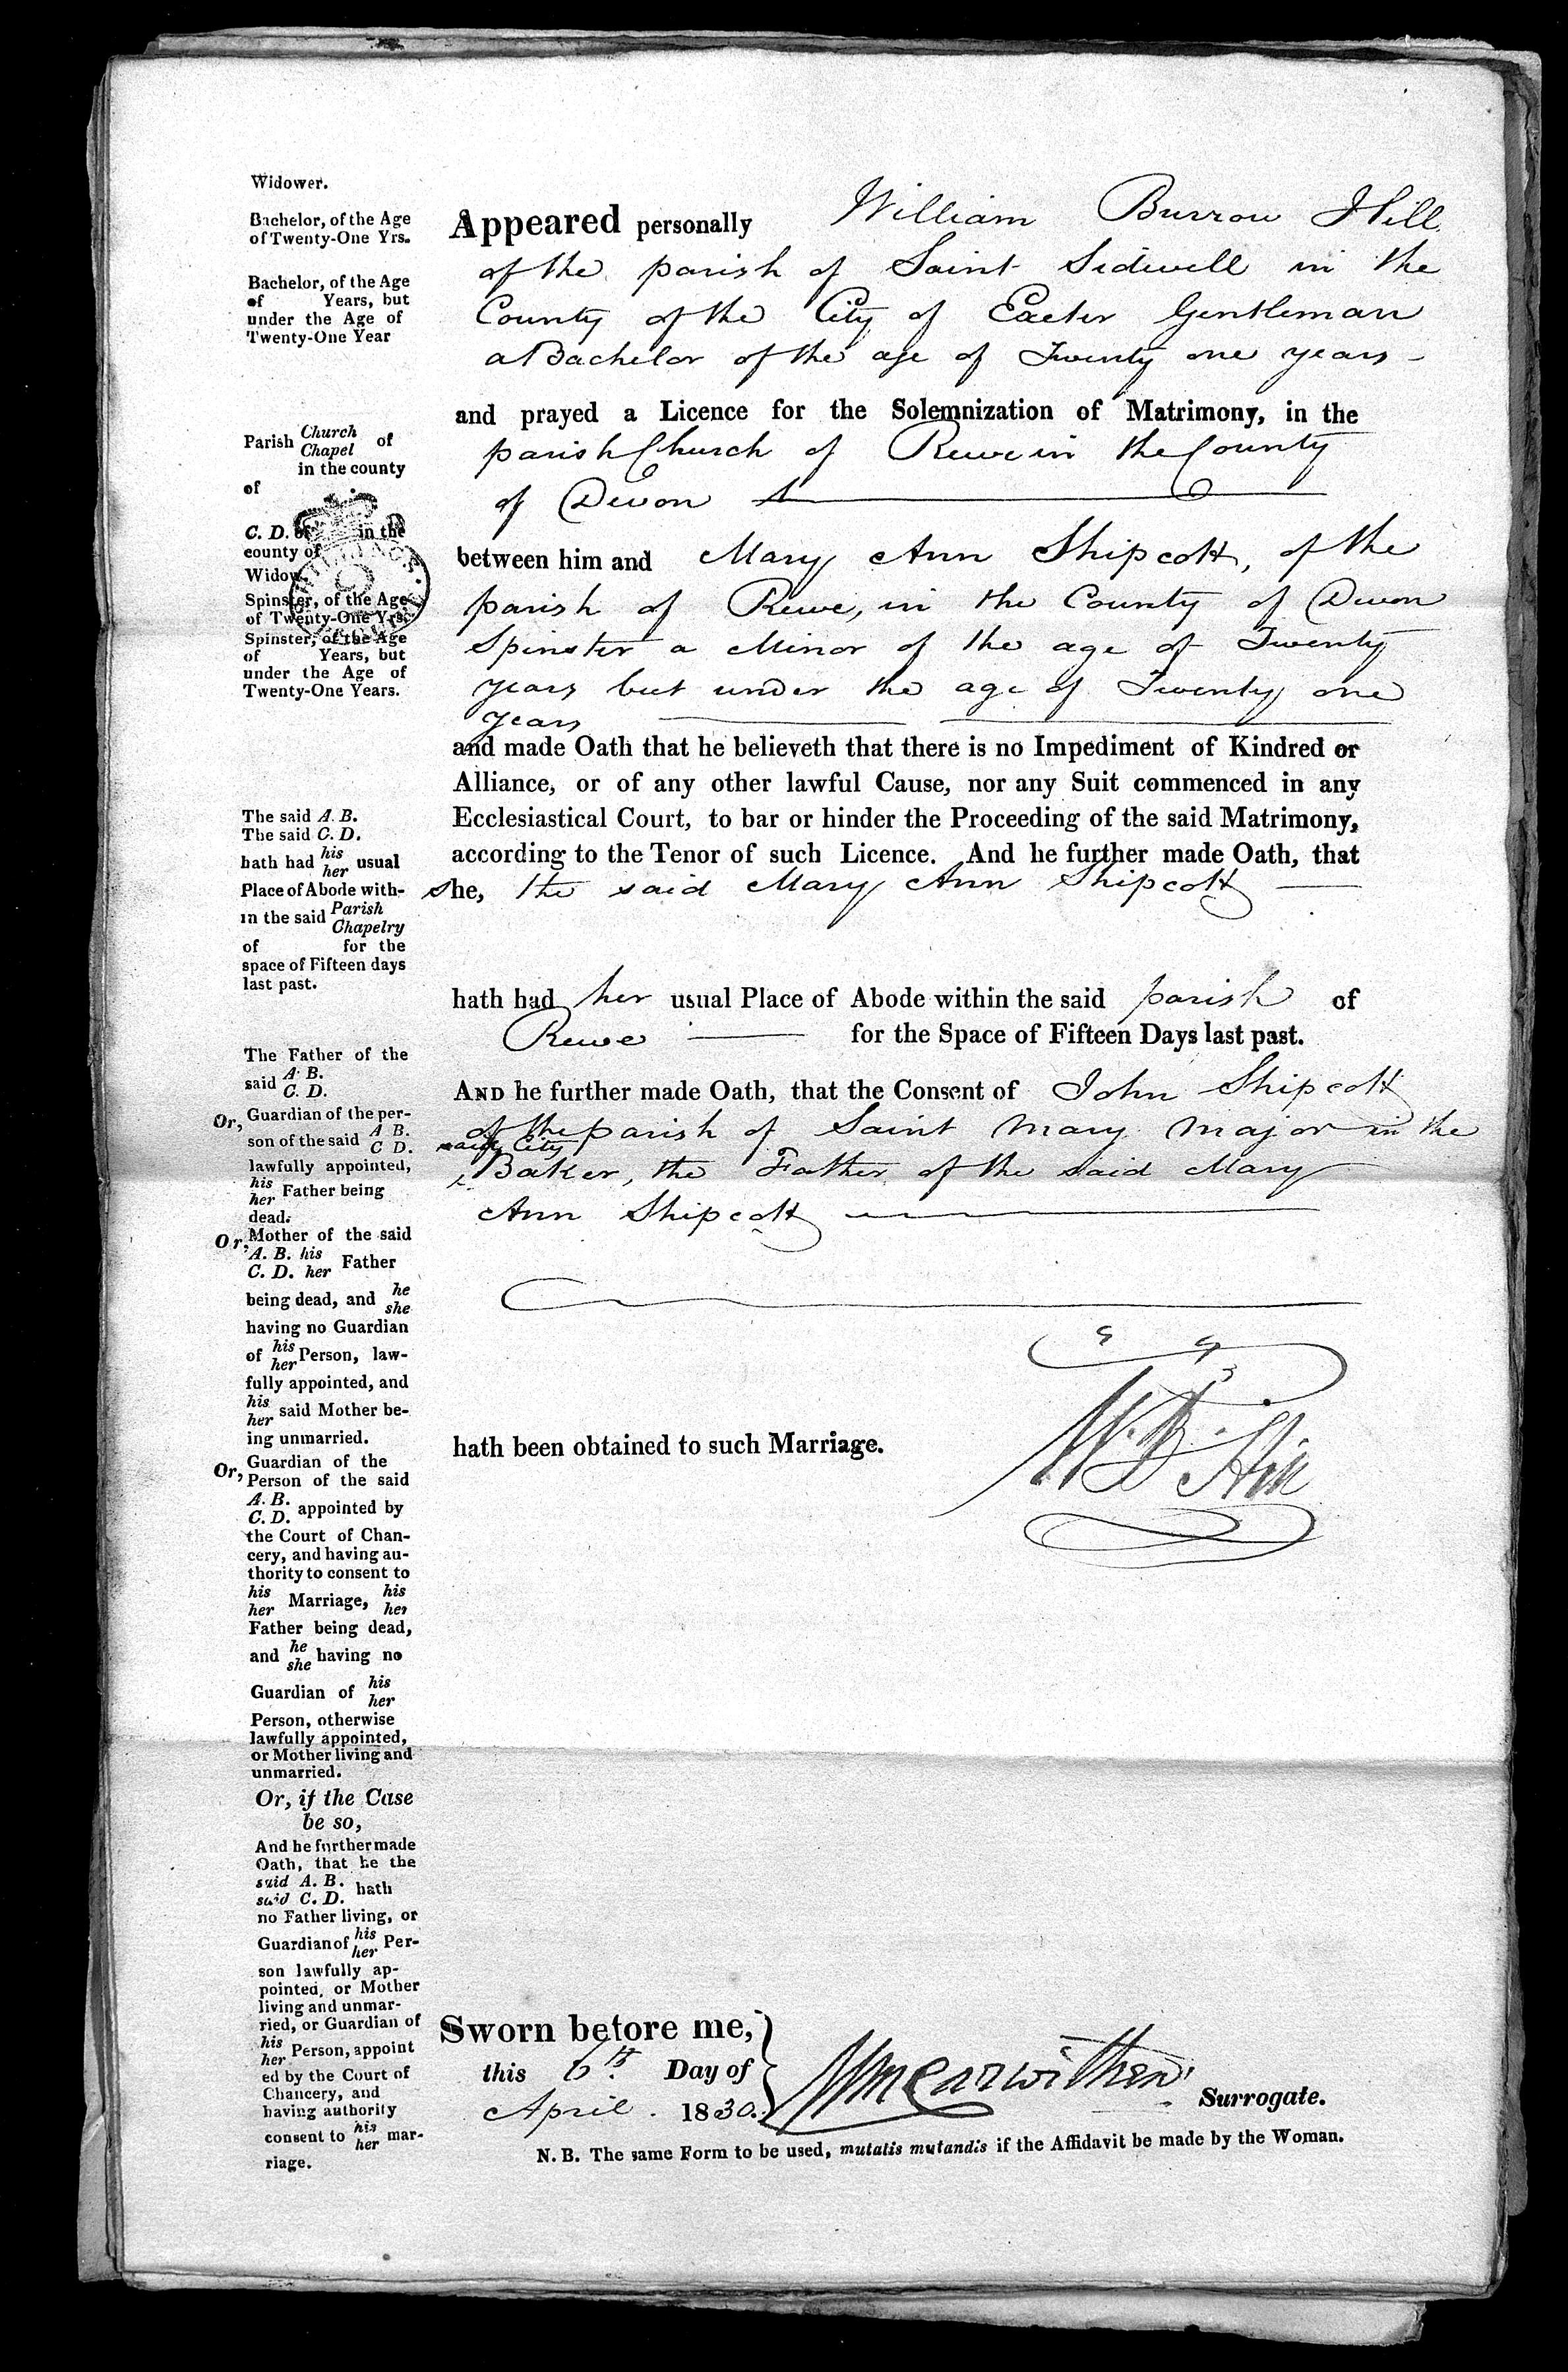 Widower.
Bachelor, of the Age
of Twenty-One Yrs.
Bachelor, of the Age
of Years, but
under the Age of
Twenty-One Year
Parish Church Chapel of
in the county
of
C. D. of in the
county of
Widow.
Spinster, of the Age
of Twenty-One Yrs.
Spinster, of the Age
of Years, but
under the Age of
Twenty-One Years.
The said A. B.
The said C. D.
hath had his her usual
Place of Abode with-
in the said Parish Chapelry
of for the
space of Fifteen days
last past.
The Father of the
said A. B. C. D.
Or, Guardian of the per-
son of the said A B. C D.
lawfully appointed,
his her Father being
dead.
Or, Mother of the said
A. B. his
C. D. her Father
being dead, and he she
having no Guardian
of his her Person, law-
fully appointed, and
his her said Mother be-
ing unmarried.
Or, Guardian of the
Person of the said
A. B. C. D. appointed by
the Court of Chan-
cery, and having au-
thority to consent to
his her Marriage, his her
Father being dead,
and he she having no
Guardian of his her
Person, otherwise
lawfully appointed,
or Mother living and
unmarried.
Or, if the Case
be so,
And he further made
Oath, that he the
said A. B.
said C. D. hath
no Father living, or
Guardian of his her Per-
son lawfully ap-
pointed, or Mother
living and unmar-
ried, or Guardian of
his her Person, appoint
ed by the Court of
Chancery, and
having authority
consent to his her mar-
riage.
Appeared personally William Burrow Hill
of the parish of Saint Sidwell in the
County of the City of Exeter Gentleman
a Bachelor of the age of Twenty one years -
and prayed a Licence for the Solemnization of Matrimony, in the
parish Church of Rewe in the County
of Devon
between him and Mary Ann Shipcott, of the
parish of Rewe, in the County of Devon
Spinster a Minor of the age of Twenty
years but under the age of Twenty one
years
and made Oath that he believeth that there is no Impediment of Kindred or
Alliance, or of any other lawful Cause, nor any Suit commenced in any
Ecclesiastical Court, to bar or hinder the Proceeding of the said Matrimony,
according to the Tenor of such Licence. And he further made Oath, that
she, the said Mary Ann Shipcott
hath had her usual Place of Abode within the said parish of
Rewe for the Space of Fifteen Days last past.
AND he further made Oath, that the Consent of John Shipcott
of the parish of Saint Mary Major in the
said City
Baker, the Father of the said Mary
Ann Shipcott
hath been obtained to such Marriage.
W. B. Hill
Sworn before me,
this 6th. Day of
April. 1830.
Wm Carwithen Surrogate.
N. B. The same Form to be used, mutatis mutandis if the Affidavit be made by the Woman.